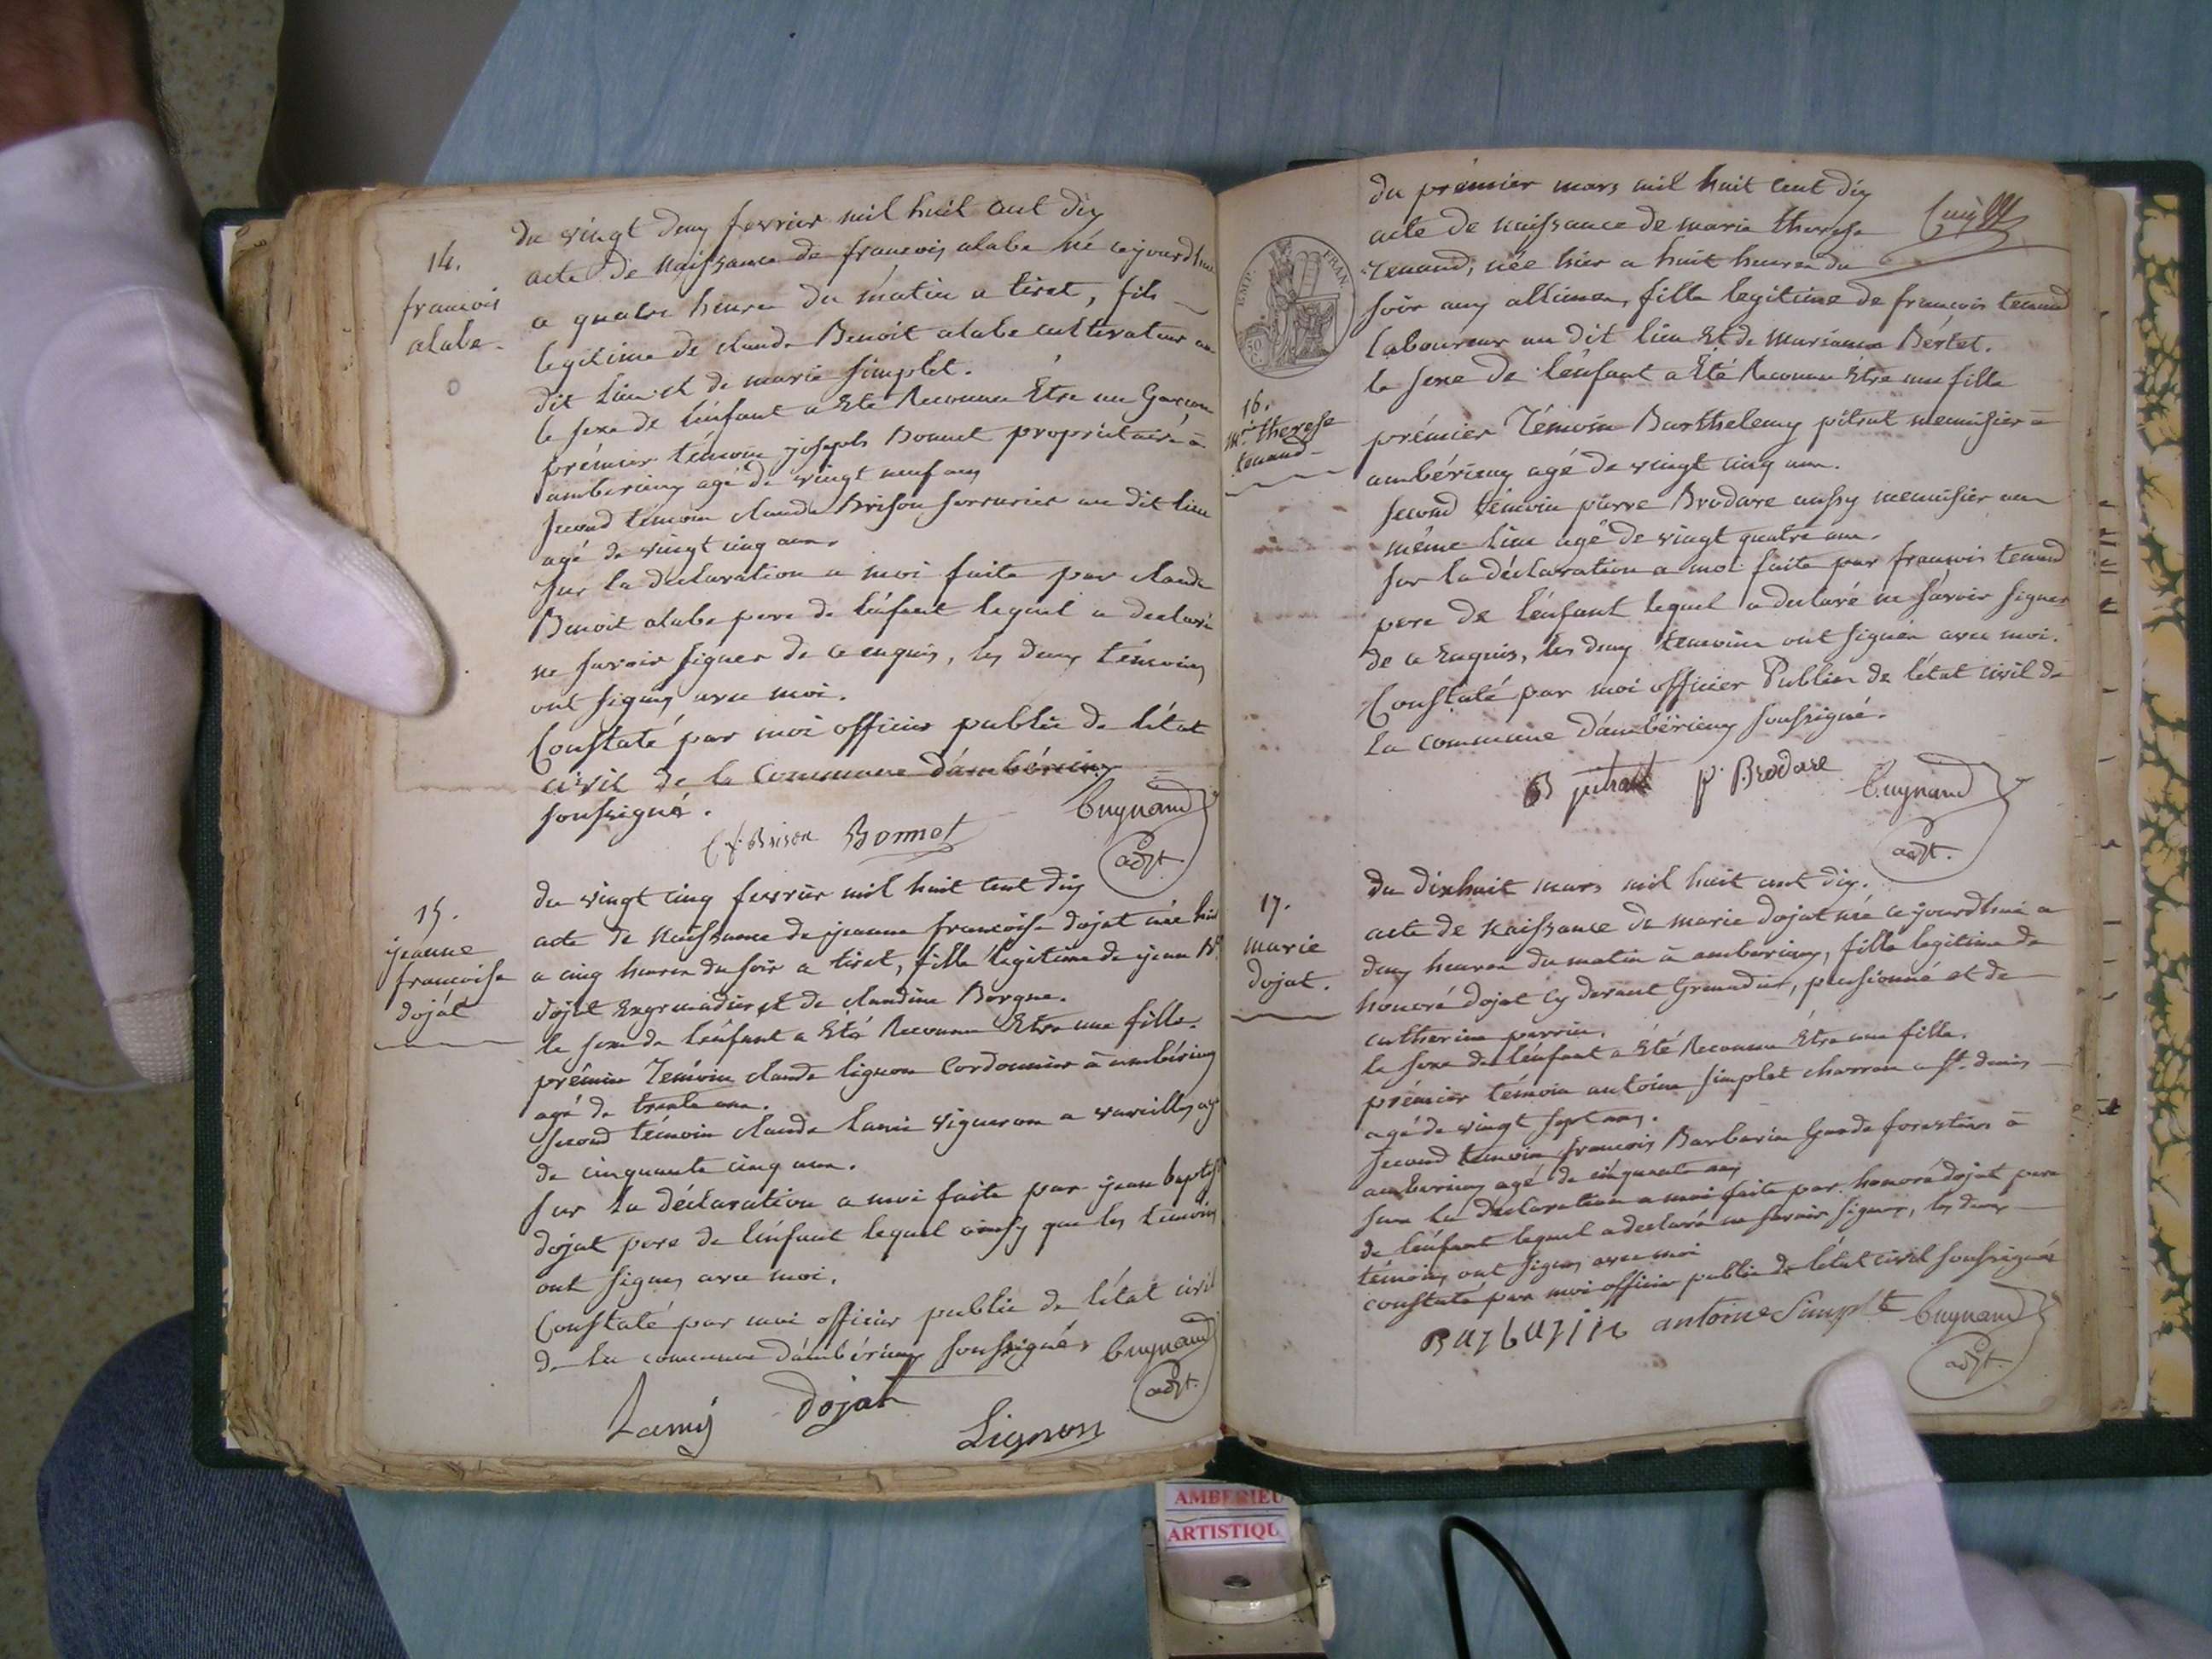 14.
francois
alabe.
du vingt deux fevrier mil huit cent dix
acte de Naissance de francois alabe né cejourdhui
a quatre heures du matin a tiret, fils
legitime de claude Benoit alabe cultivateur au
dit lieu et de marie simplet.
le sexe de l'énfant a Eté Reconnu Être un Garcon
prémier témoin joseph Bonnet propriétairé à
amberieux agé de vingt neuf ans
second témoin claude Brison serrurier au dit lieu
agé de vingt cinq ans
sur la déclaration a moi faite par claude
Benoit alabe pere de l'énfant lequel a declaré
ne savoir signer de ce enquis, les deux témoins
ont signés avec moi.
Constaté par moi officier public de l'état
civil de la Commune d'ambérieux
soussigné.
Cl. Brison Bonnet Cuynand
adjt.
15.
jeanne
francoise
dojat
du vingt cinq fevrier mil huit cent dix
acte de Naissance de jeanne francoise dojat née hier
a cinq heures du soir a tiret, fille légitime de jean Bte
dojat Exgrenadier et de claudine Borgne.
le sexe de l'énfant a Eté Reconnu Etre une fille.
prémier Témoin claude lignon Cordonnier à ambérieux
agé de trente ans.
second témoin claude lami vigneron a vareilles agé
de cinquante cinq ans.
sur la déclaration a moi faite par jean baptiste
dojat pere de l'énfant lequel ainsy que les témoins
ont signés avec moi.
Constaté par moi officier public de l'état civil
de la commune d'ambérieux soussigné Cuynand
adjt.
Lamy Dojat Lignon
du prémier mars mil huit cent dix
acte de naissance de marie therese
tenand, née hier a huit heures du
soir aux allimes, fille legitime de francois tenand
laboureur au dit lieu Et de Marianne Bértet.
le sexe de l'énfant a Eté Reconnu Etre une fille
EMP. FRAN.
16.
Mie therese
tenand
prémier Témoin Barthelemy pitrat menuisier à
ambérieux agé de vingt cinq ans.
second témoin pierre Brodare aussy menuisier au
même lieu agé de vingt quatre ans.
sur la déclaration a moi faite par francois tenand
pere de l'énfant lequel a declaré ne savoir signer
de ce Enquis, les deux temoins ont signés avec moi.
Constaté par moi officier Public de l'état civil de
la commune d'ambérieux soussigné.
B pitrat p. Brodare Cuynand
adjt.
17.
marie
dojat.
du dixhuit mars mil huit cent dix.
acte de naissance de marie dojat née cejourdhui a
deux heures du matin à amberieux, fille legitime de
honoré dojat cy devant Grenadier, pensionné et de
catherine perrin.
le sexe de l'énfant a Eté Reconnu Être une fille.
prémier témoin antoine simplet charron a st. denis
agé de vingt sept ans.
second temoin francois Barbarin Garde forestier à
amberieux agé de cinquante ans
sur la declaration a moi faite par honoré dojat pere
de l'énfant lequel a declaré ne savoir signer, les deux
témoins ont signés avec moi
constaté par moi officier public de l'état civil soussigné
Barbarin antoine Simplet Cuynand
adjt.
AMBERIEU
ARTISTIQU